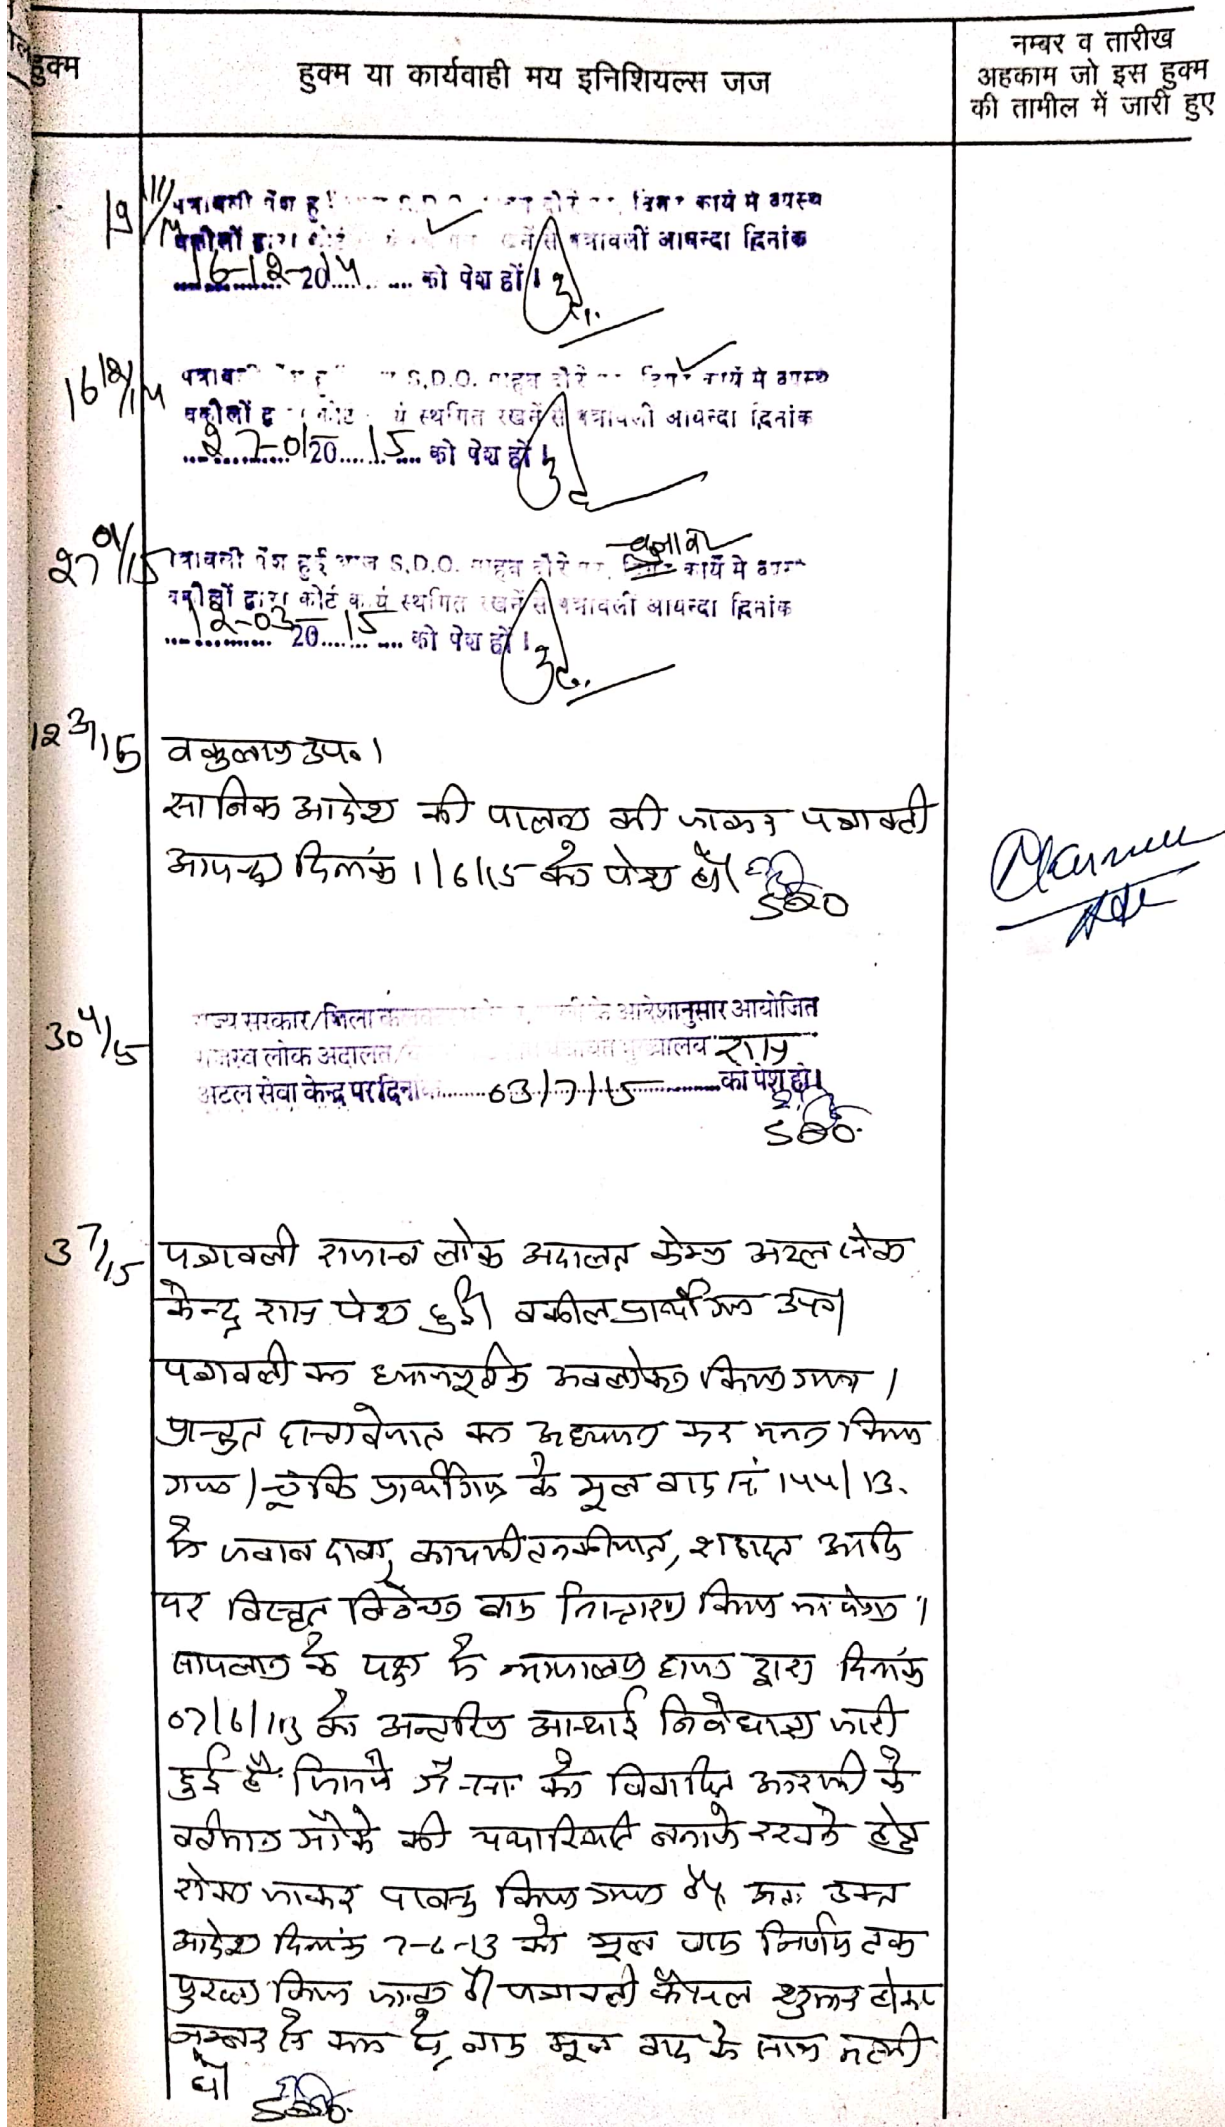 हुक्म
हुक्म या कार्यवाही मय इनिशियल्स जज
नम्बर व तारीख
अहकाम जो इस हुक्म
की तामील में जारी हुए
19/11/14
पत्रावली पेश हु कार्य मे व्यस्थ
वकीलों द्वारा कोर्ट रखनें से पत्रावलीं आयन्दा दिनांक
16-12-2014 को पेश हों।
16 12/14
पत्राव S.D.O. साहब दौरे कार्य मे व्यस्थ
वकीलों द्व कोर्ट यं स्थगित रखनें से पत्रावली आयन्दा दिनांक
27-01-2015 को पेश हों।
27 01/15
चुनाव
पत्रावली पेश हुई आज S.D.O. साहब दौरे पर कार्य मे व्यस्
वकीलों द्वारा कोर्ट कायं स्थगित रखनें से पत्रावलीं आयन्दा दिनांक
12-03-2015 को पेश हों।
12 3/15
वकुलान उप०।
साबिक आदेश की पालना की जाकर पत्रावली
आयन्दा दिनांक 1/6/15 को पेश हो।
SDO
30 4/15
राज्य सरकार/जिला के आदेशानुसार आयोजित
राजस्व लोक अदालत मुख्यालय
अटल सेवा केन्द्र पर दिनांक 03/7/15 को पेश हो।
SDO
3 7/15
पत्रावली राजस्व लोक अदालत केम्प अटल सेवा
केन्द्र पेश हुई। वकील प्रार्थीगण उप०।
पत्रावली का ध्यानपूर्वक अवलोकन किया गया।
प्रस्तुत दस्तावेजात का अध्ययन कर मनन किया
गया। चूंकि प्रार्थीगण के मूल वाद नं 144/13.
के जवाब दावा, कायमी तनकीयात, शहादत आदि
पर विस्तृत विवेचन बाद निस्तारण किया जावेगा।
सायलान के पक्ष में न्यायालय हाजा द्वारा दिनांक
07/6/13 को अन्तरिम अस्थाई निषेधाज्ञा जारी
हुई है जिसमें को विवादित आराजी के
वर्तमान मौके की यथास्थिति बनाये रखने हेतु
जाकर पाबन्द किया गया है। अतः उक्त
आदेश दिनांक 7-6-13 को मूल वाद निर्णय तक
किया जाता है। पत्रावली फैसल शुमार होकर
नम्बर से कम हो, बाद मूल वाद के साथ नत्थी
हो।
SDO